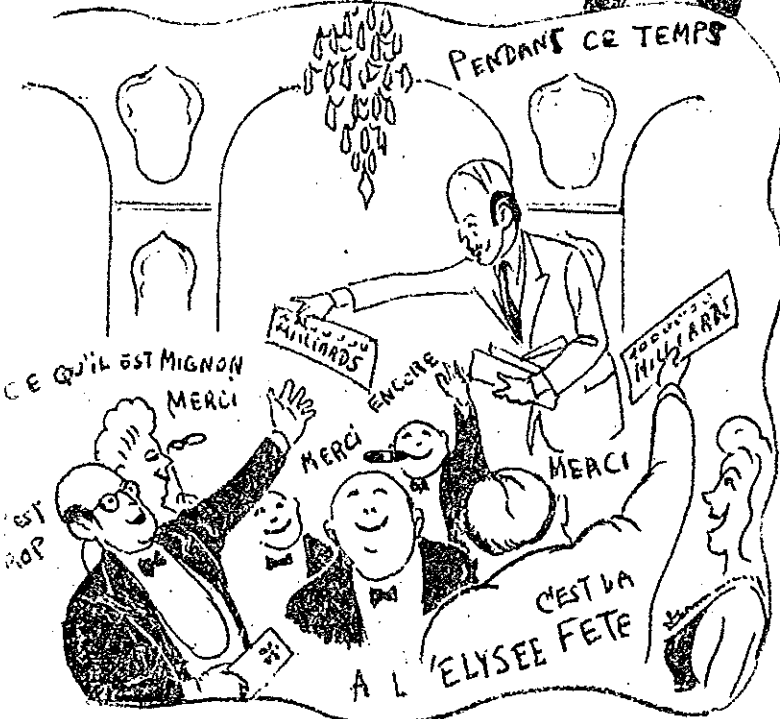 PENDANT CE TEMPS
MILLIARDS
MILLIARDS
CE QU'IL EST MIGNON
MERCI
ENCORE
MERCI
MERCI
EST
C'EST LA
FETE
A L'ELYSEE